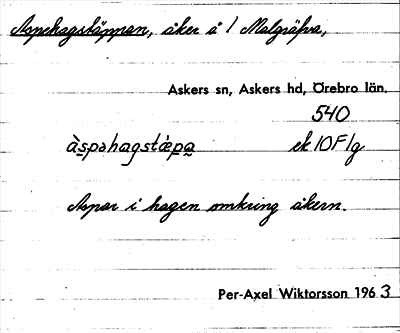 Aspehagstäppan, åker å 1 Malgräfva,
Askers sn, Askers hd, Örebro län.
540
àspəhagstǽpa̰ ek 10F1g
Aspar i hagen omkring åkern.
Per-Axel Wiktorsson 1963